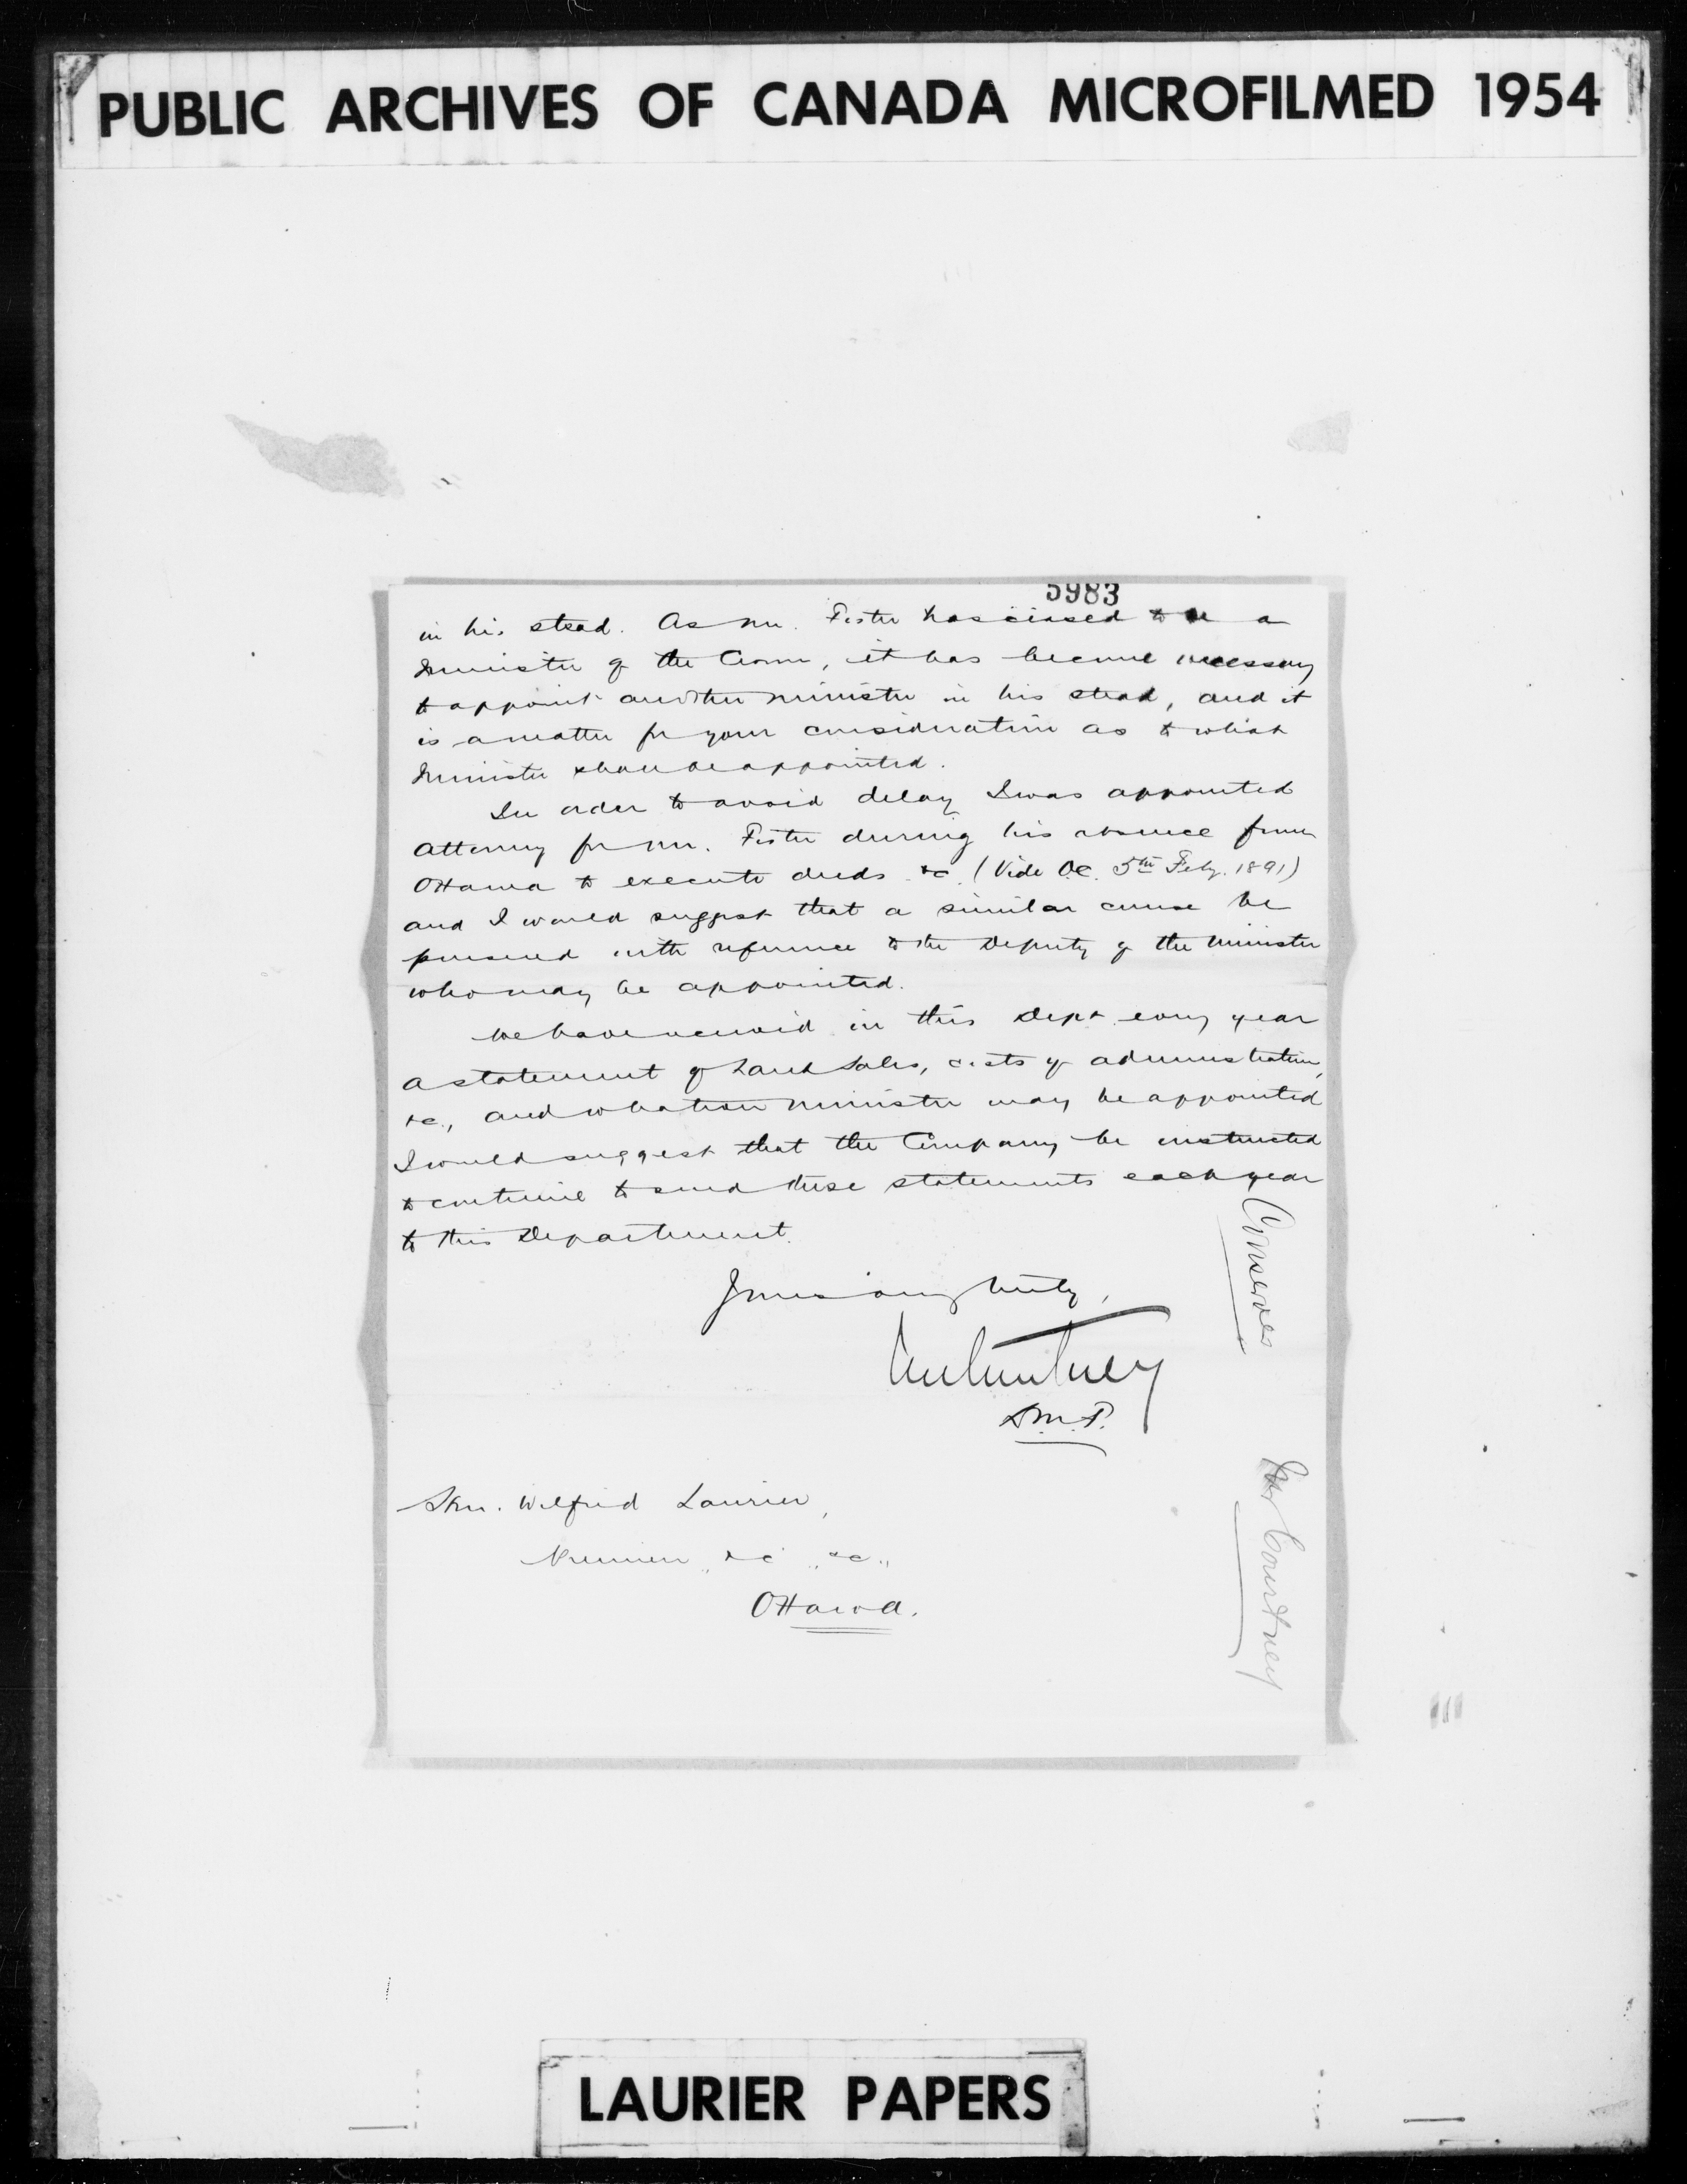 PUBLIC ARCHIVES OF CANADA MICROFILMED 1954
5983
in his stead. As Mr. Foster has ceased to be a
Minister of the Crown, it has become necessary
to appoint another Minister in his stead, and it
is a matter for your consideration as to what
Minister shall be appointed.
In order to avoid delay I was appointed
Attorney for Mr. Foster during his absence from
Ottawa to execute deeds &c. (Vide O.C. 5th Feby. 1891)
and I would suggest that a similar course be
pursued with reference to the Deputy of the Minister
who may be appointed.
We have received in this Dept. every year
a statement of Land Sales, costs of administration,
&c., and whatever Minister may be appointed
I would suggest that the Company be instructed
to continue to send these statements each year
to this Department.
Yours very truly,
Courtney
D.M.F.
Hon. Wilfrid Laurier,
Premier, &c., &c.,
Ottawa.
Conserves
Mr Courtney
LAURIER PAPERS